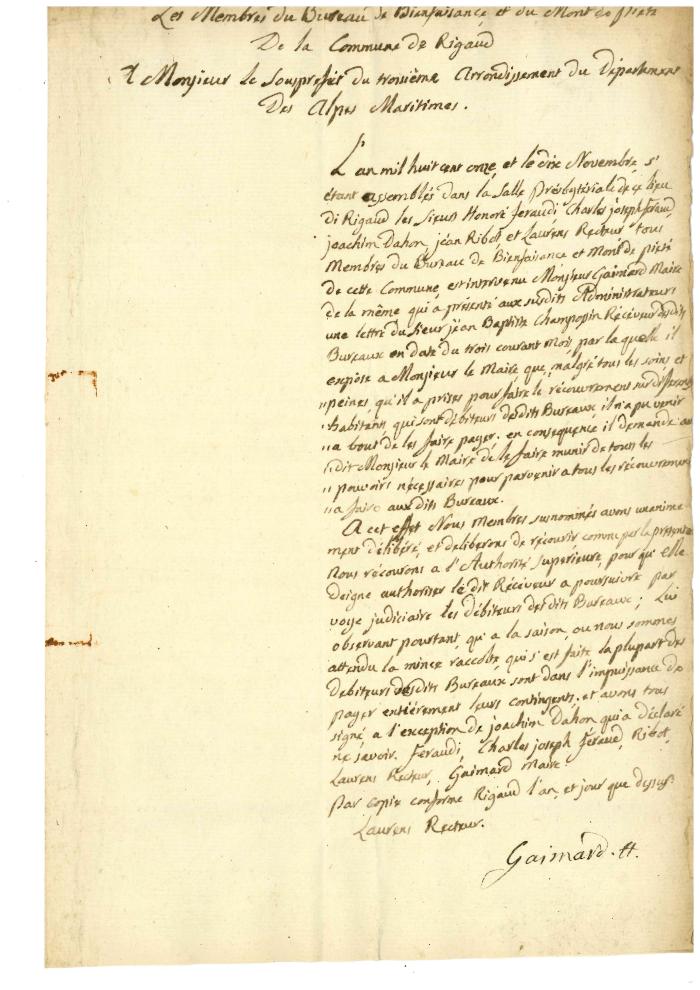 Les Membres du Bureau de Bienfaisance et du Mont de pieté
De la Commune de Rigaud
A Monsieur le Sousprefet du troisième Arrondissement du Département
Des Alpes Maritimes.
L'an mil huit cent onze, et le dix Novembre, s'
étant assemblés dans la Salle Presbytériale de ce lieu
di Rigaud les sieurs Honoré feraudi, Charles joseph feraud,
joachim Dahon, jean Ribot, et Laurens Recteur tous
Membres du Bureau de Bienfaisance et Mont de pieté
de cette Commune, est intervenu Monsieur Gaimard Maire
de la même qui a présenté aux susdits Administrateurs
une lettre du sieur jean Baptiste Champossin Récéveur desdits
Bureaux en date du trois courant mois, par la quelle il
expose a Monsieur le Maire que, malgré tous les soins et
"peines, qu'il a prises pour faire le récouvrement sur differents
"habitans qui sont débiteurs desdits Bureaux il n'a pu venir
"a bout de les faire payer. en consequence il demande au
"dit Monsieur le Maire de le faire munir de tous les
"pouvoirs nécessaires pour parvenir a tous les récouvremens
"a faire auxdits Bureaux.
A cet effet Nous Membres susnommés avons unanime
ment délibéré, et deliberons de récourir comme par la présente
Nous récourons a l'Authorité superieure, pour qu'elle
Deigne authoriser le dit Récéveur a poursuivre par
voye judiciaire les débiteurs desdits Bureaux; Lui
observant pourtant, qu'a la saison, ou nous sommes
attendu la mince raccolte, qui s'est faite la plupart des
Debiteurs desdits Bureaux sont dans l'impuissance de
payer entiérement leurs contingents. et avons tous
signé a l'exception de joachim Dahon qui a déclaré
ne savoir. Féraudi, Charles joseph féraud, Ribot,
Laurens Recteur, Gaimard Maire.
Par copie conforme Rigaud l'an, et jour que dessus.
Laurens Recteur.
Gaimard.